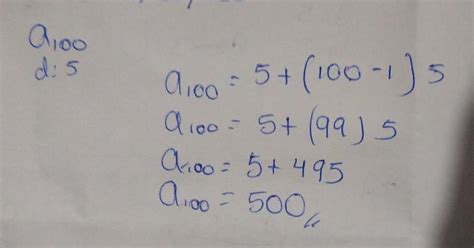 a₁₀₀
d: 5
a₁₀₀ = 5 + (100 - 1) 5
a₁₀₀ = 5 + (99) 5
a₁₀₀ = 5 + 495
a₁₀₀ = 500